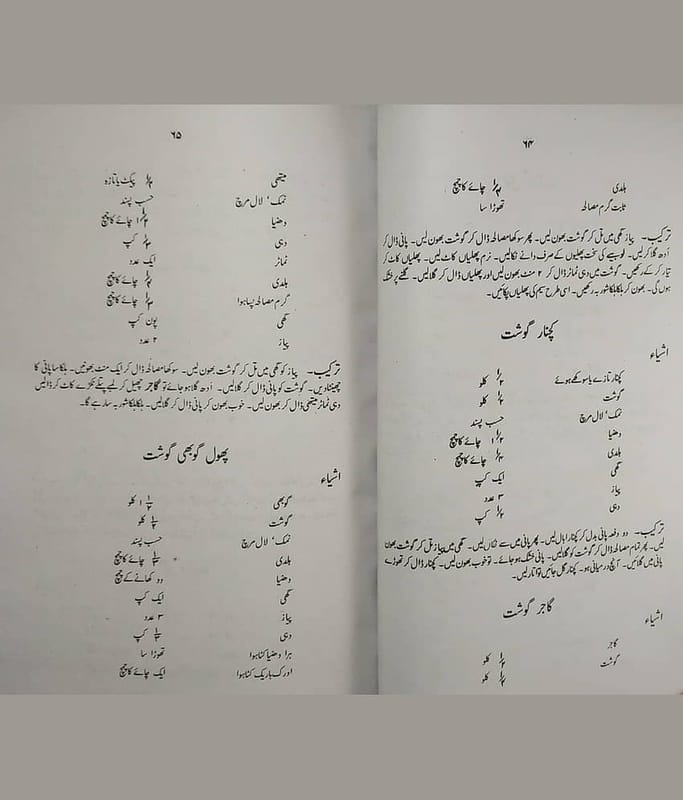 ۶۴
ہلدی ۱/۲ چائے کا چمچ
ثابت گرم مصالحہ تھوڑا سا
ترکیب۔ پیاز گھی میں تل کر گوشت بھون لیں۔ پھر سوکھا مصالحہ ڈال کر گوشت بھون لیں۔ پانی ڈال کر
اُدھ گلا کر لیں۔ لوبیے کی سخت پھلیوں کے صرف دانے نکالیں۔ نرم پھلیاں کاٹ لیں۔ پھلیاں کاٹ کر
تیار کر کے رکھیں۔ گوشت میں دہی ٹماٹر ڈال کر ۲ منٹ بھون لیں اور پھلیاں ڈال کر گلا لیں۔ گلنے پر خشک
ہوں گی۔ بھون کر ہلکا ہلکا شوربہ رکھیں۔ اسی طرح سیم کی پھلیاں پکائیں۔
کچنار گوشت
اشیاء
کچنار تازے یا سوکھے ہوئے ۱/۲ کلو
گوشت ۱/۲ کلو
نمک، لال مرچ حسب پسند
دھنیا ۱ ۱/۲ چائے کا چمچ
ہلدی ۱/۲ چائے کا چمچ
گھی ایک کپ
پیاز ۳ عدد
دہی ۱/۲ کپ
ترکیب۔ دو دفعہ پانی بدل کر کچنار ابال لیں۔ پھر پانی میں سے نکال لیں۔ گھی میں پیاز تل کر گوشت بھون
لیں۔ پھر تمام مصالحہ ڈال کر گوشت کو گلا لیں۔ پانی خشک ہو جائے۔ تو خوب بھون لیں۔ کچنار ڈال کر تھوڑے
پانی میں گلائیں۔ آنچ درمیانی ہو۔ کچنار گل جائیں تو اتار لیں۔
گاجر گوشت
اشیاء
گاجر ۱/۲ کلو
گوشت ۱/۲ کلو
۶۵
میتھی ۱/۲ پیکٹ یا تازہ
نمک، لال مرچ حسب پسند
دھنیا ۱ ۱/۲ چائے کا چمچ
دہی ۱/۲ کپ
ٹماٹر ایک عدد
ہلدی ۱/۲ چائے کا چمچ
گرم مصالحہ پسا ہوا ۱/۲ چائے کا چمچ
گھی پون کپ
پیاز ۲ عدد
ترکیب۔ پیاز کو گھی میں تل کر گوشت بھون لیں۔ سوکھا مصالحہ ڈال کر ایک منٹ بھونیں۔ ہلکا سا پانی کا
چھینٹا دیں۔ گوشت کو پانی ڈال کر گلا لیں۔ اُدھ گلا ہو جائے تو گاجر چھیل کر لمبے پتلے ٹکڑے کاٹ کر ڈالیں
دہی ٹماٹر میتھی ڈال کر بھون لیں۔ خوب بھون کر پانی ڈال کر گلا لیں۔ ہلکا ہلکا شوربہ سا رہے گا۔
پھول گوبھی گوشت
اشیاء
گوبھی ۱ ۱/۲ کلو
گوشت ۱/۲ کلو
نمک، لال مرچ حسب پسند
ہلدی ۱/۲ چائے کا چمچ
دھنیا دو کھانے کے چمچ
گھی ایک کپ
پیاز ۳ عدد
دہی ۱/۲ کپ
ہرا دھنیا کٹا ہوا تھوڑا سا
ادرک باریک کٹا ہوا ایک چائے کا چمچ